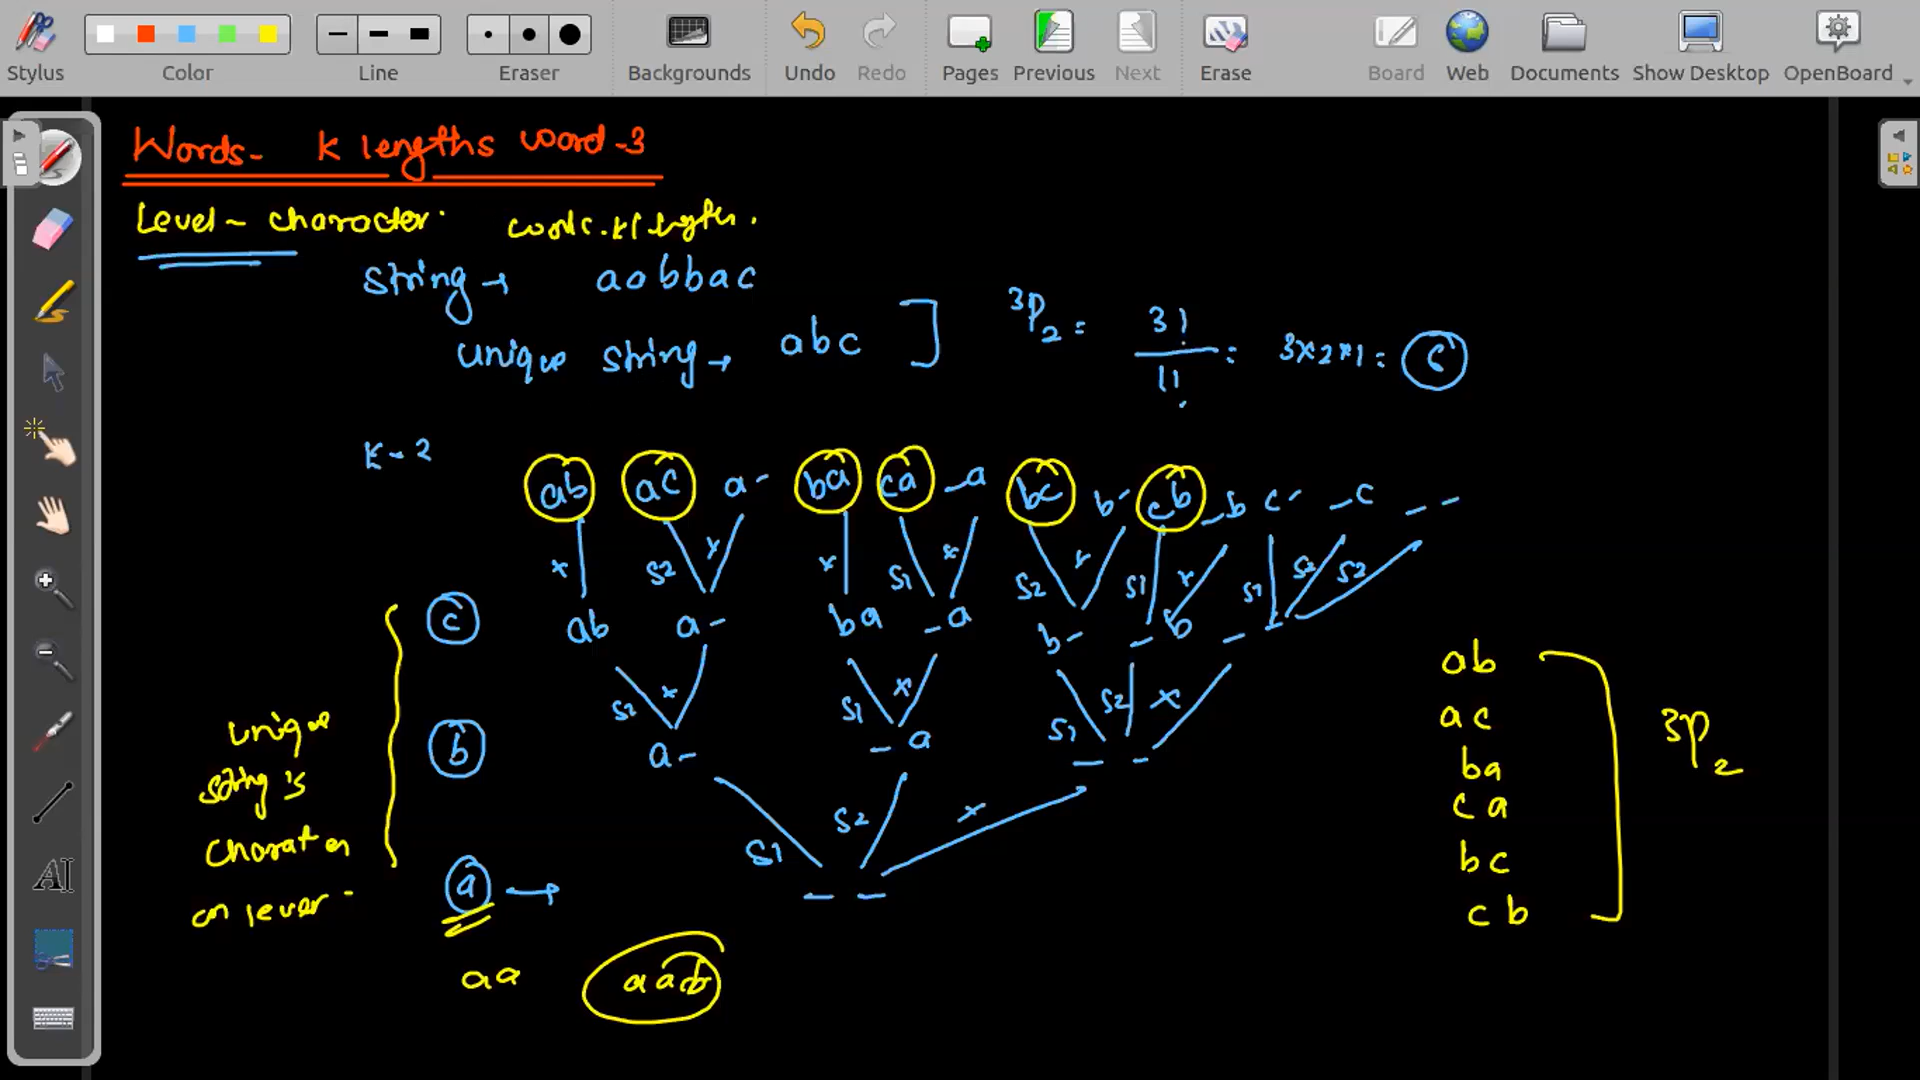 Stylus Color Line Eraser Backgrounds Undo Redo Pages Previous Next Erase Board Web Documents Show Desktop OpenBoard
Words- K lengths word-3
Level- character.
string→ aabbac
unique string→ abc ] 3P2 = 3! / 1! = 3x2x1 = 6
K-2
ab ac a- ba ca -a bc b- cb -b c- -c - -
x s2 x x s1 x s2 x s1 x s1 s2 s2
c ab a- ba -a b- -b - -
s2 x s1 x s1 s2 x
b a- -a - -
s1 s2 x
a → - -
unique
string's
on level
aa aab
ab
ac
ba
ca
bc
cb
3P2
AI